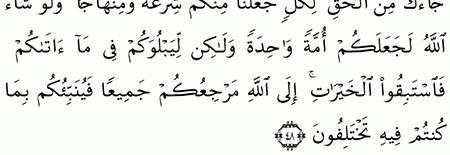 جَآءَكَ مِنَ ٱلْحَقِّ لِكُلٍّ جَعَلْنَا مِنكُمْ شِرْعَةً وَمِنْهَاجًا وَلَوْ شَآءَ
ٱللَّهُ لَجَعَلَكُمْ أُمَّةً وَٰحِدَةً وَلَٰكِن لِّيَبْلُوَكُمْ فِى مَآ ءَاتَىٰكُمْ
فَٱسْتَبِقُوا۟ ٱلْخَيْرَٰتِ ۚ إِلَى ٱللَّهِ مَرْجِعُكُمْ جَمِيعًا فَيُنَبِّئُكُم بِمَا
كُنتُمْ فِيهِ تَخْتَلِفُونَ ﴿٤٨﴾